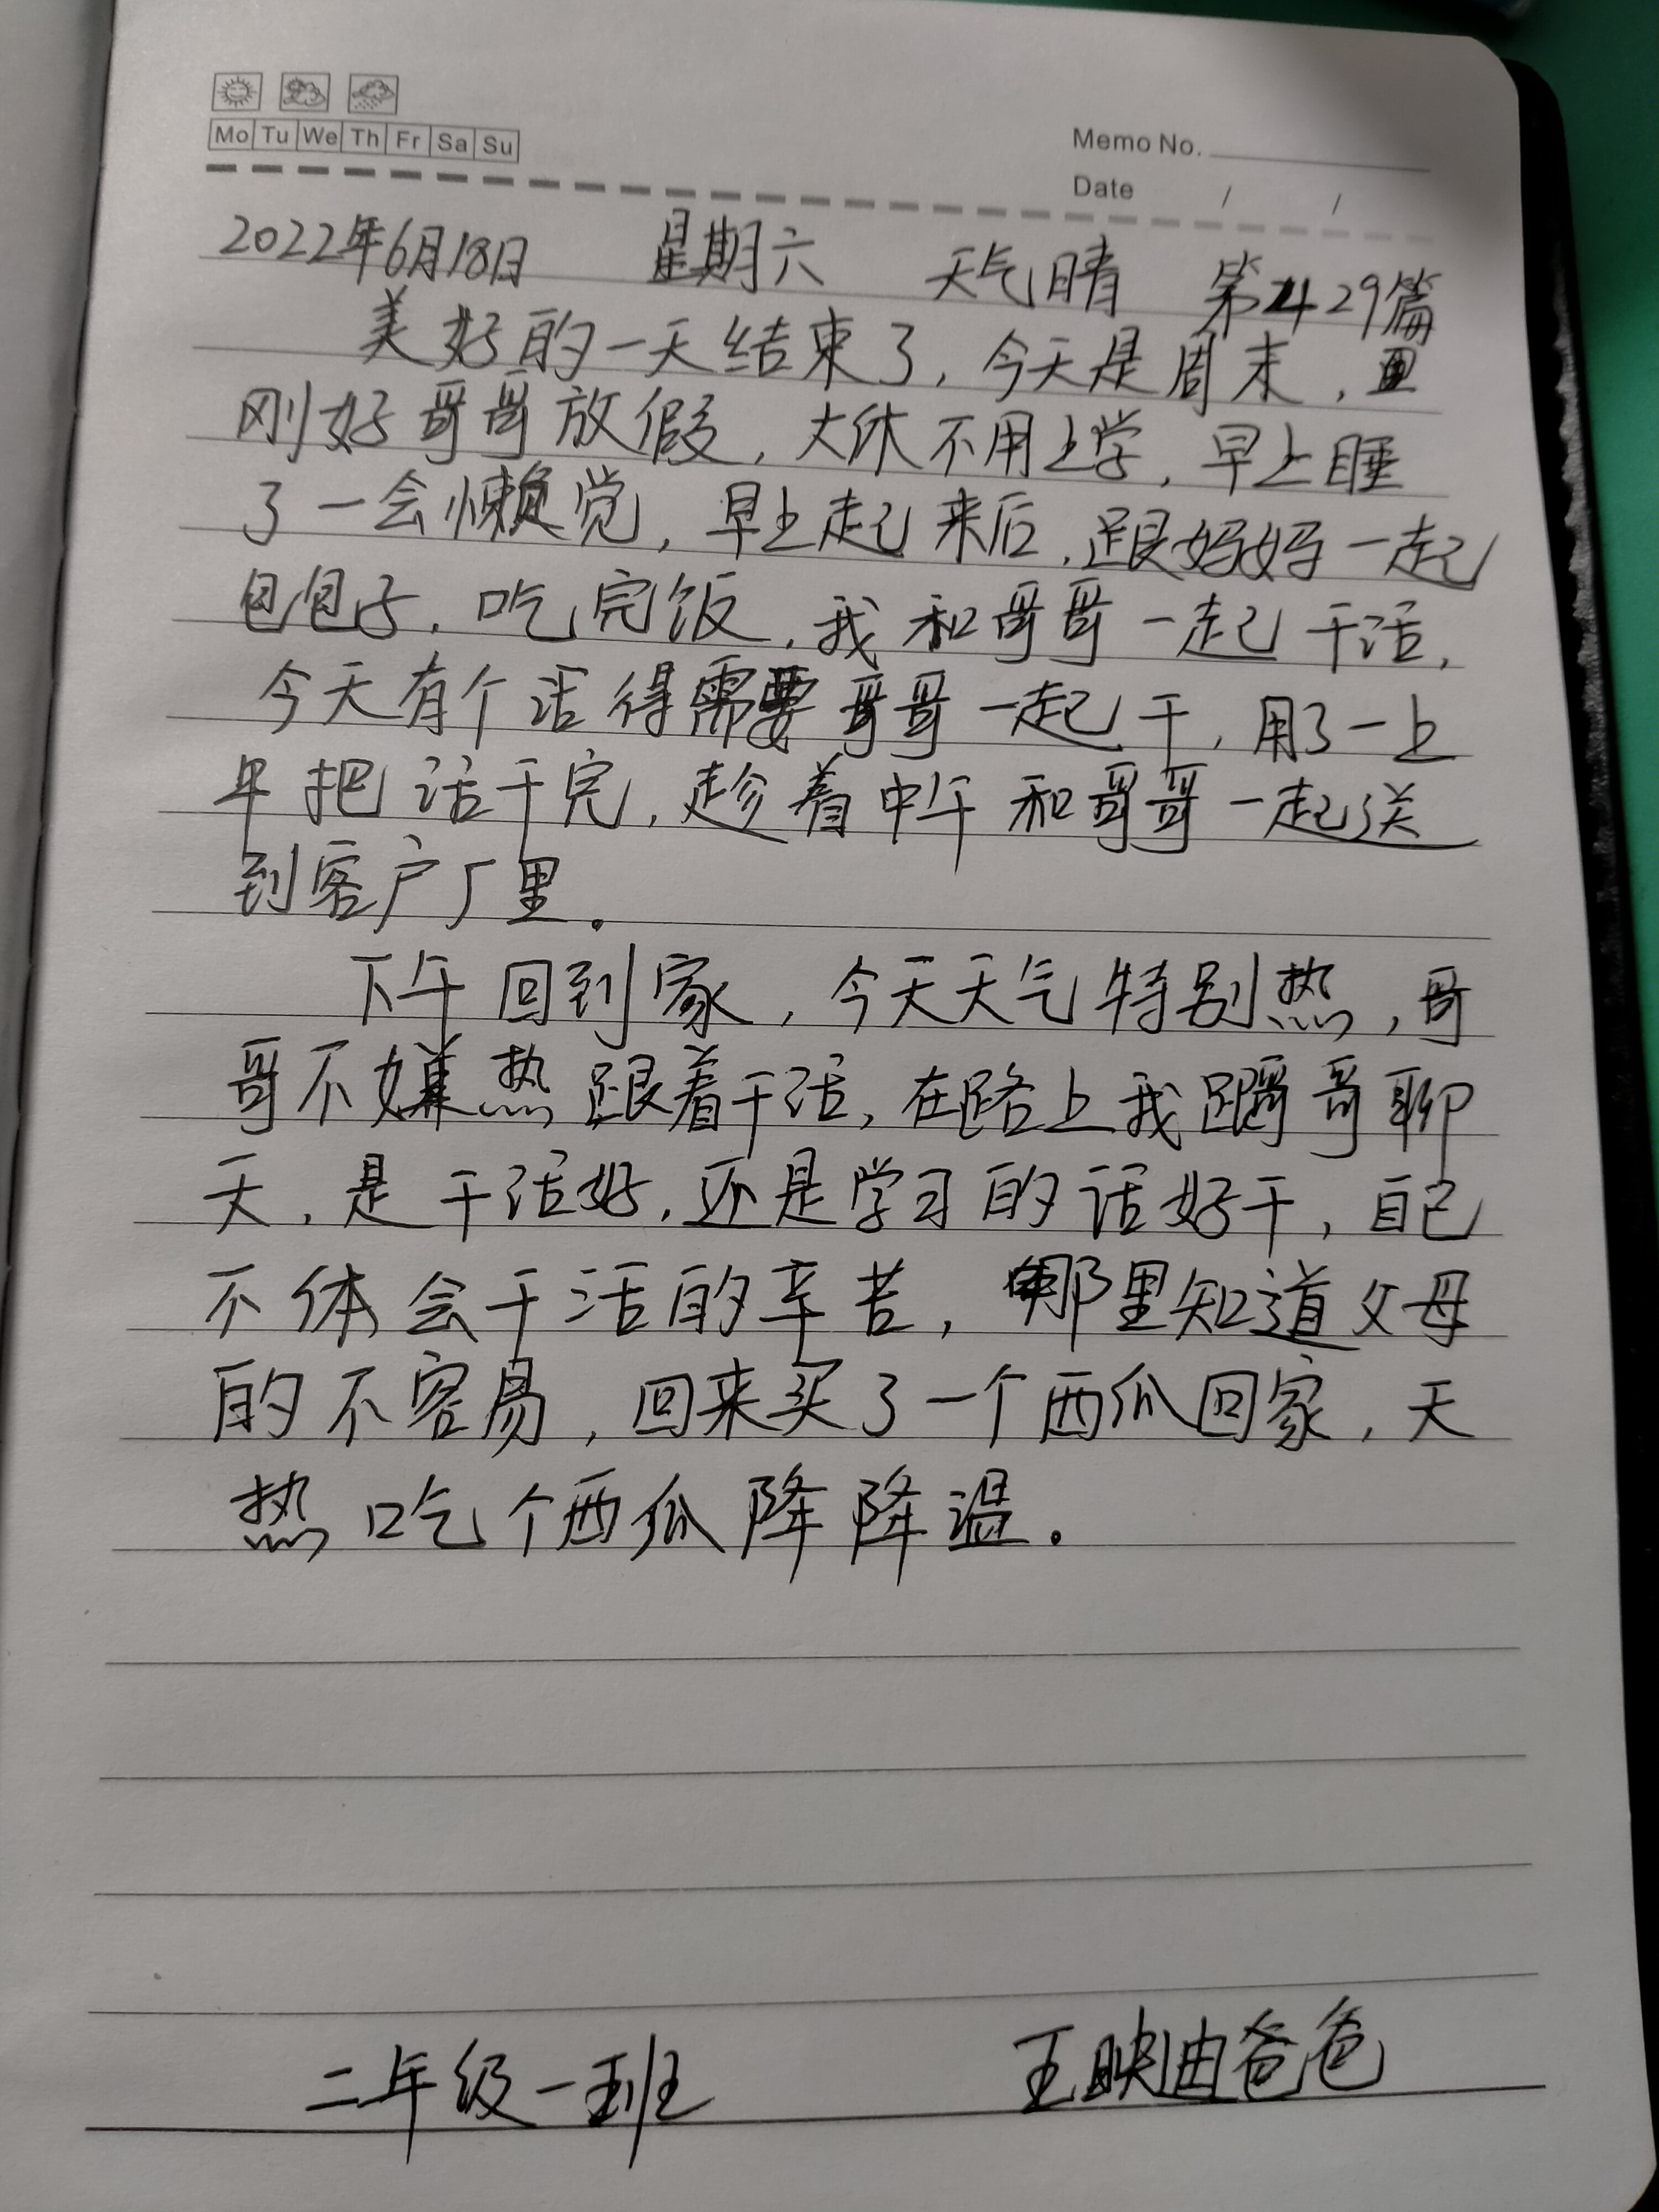 Mo Tu We Th Fr Sa Su
Memo No.
Date / /
2022年6月18日 星期六 天气晴 第429篇
美好的一天结束了,今天是周末,
刚好哥哥放假,大休不用上学,早上睡
了一会懒觉,早上起来后,跟妈妈一起
包包子,吃完饭,我和哥哥一起干活,
今天有个活得需要哥哥一起干,用了一上
午把活干完,趁着中午和哥哥一起送
到客户厂里。
下午回到家,今天天气特别热,哥
哥不嫌热跟着干活,在路上我跟哥哥聊
天,是干活好,还是学习的活好干,自己
不体会干活的辛苦,哪里知道父母
的不容易,回来买了一个西瓜回家,天
热吃个西瓜降降温。
二年级一班 王映迪爸爸